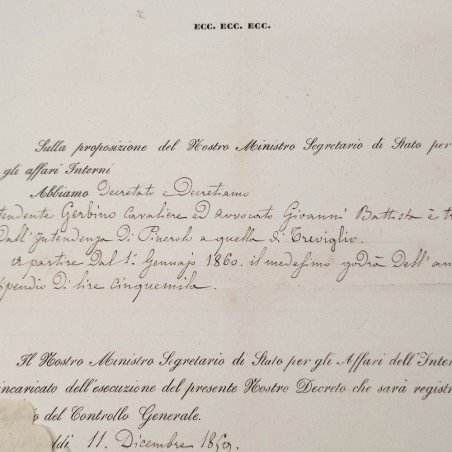 ECC. ECC. ECC.
Sulla proposizione del Nostro Ministro Segretario di Stato per
gli affari Interni
Abbiamo Decretato e Decretiamo
tendente Gerbino Cavaliere ed Avvocato Giovanni Battista è tr
dall'Intendenza di Pinerolo a quella di Treviglio.
A partire dal 1.° Gennajo 1860. il medesimo godrà dell'an
ipendio di lire cinquemila.
Il Nostro Ministro Segretario di Stato per gli Affari dell'Inter
incaricato dell'esecuzione del presente Nostro Decreto che sarà registr
o del Controllo Generale.
ddi 11. Dicembre 1859.